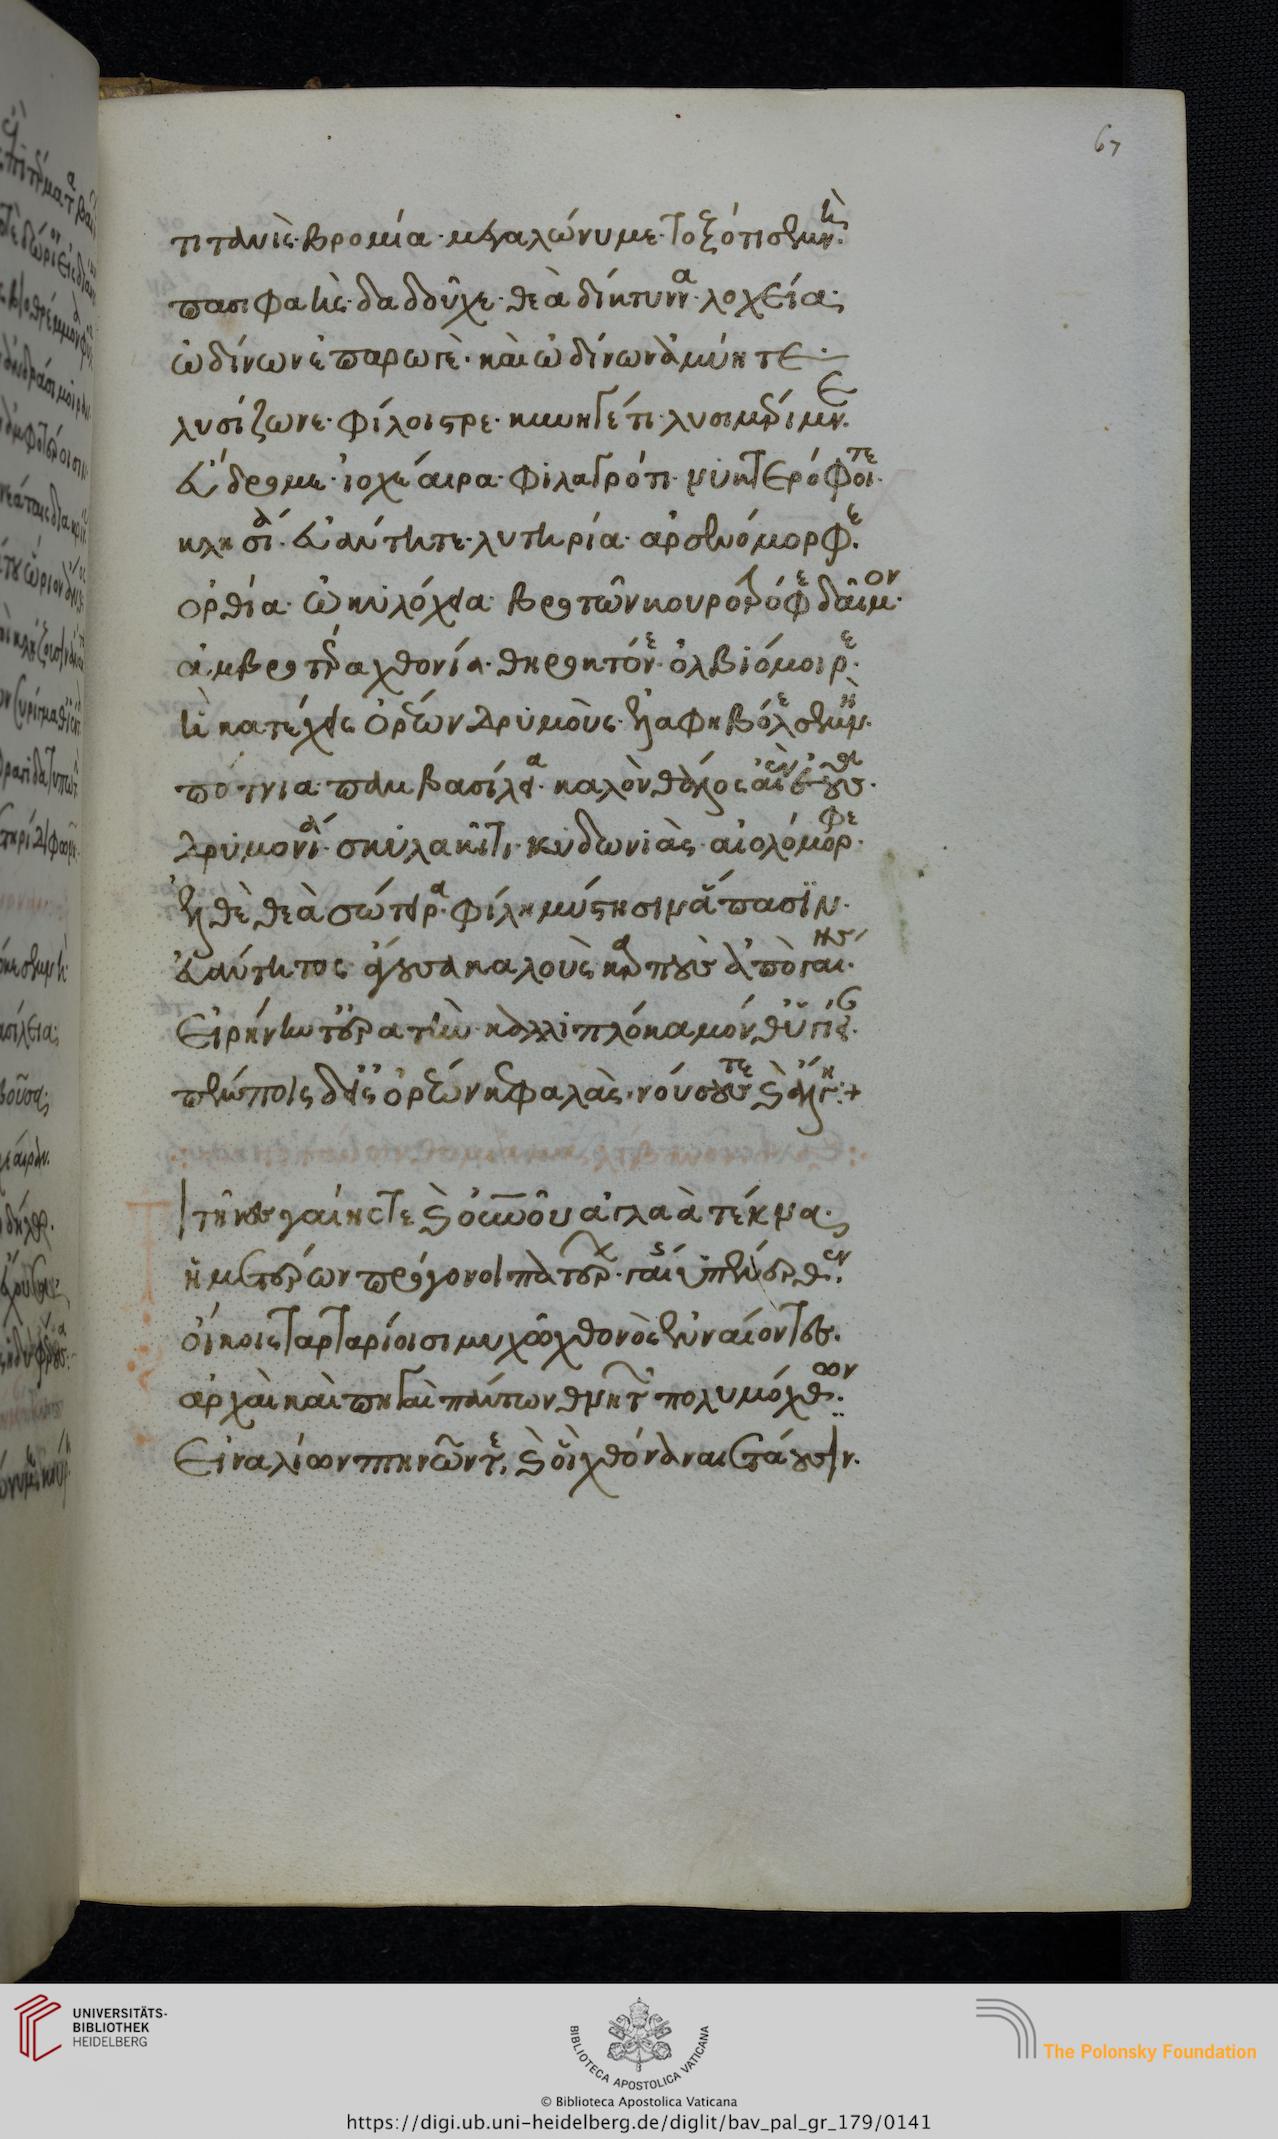 67
τιτανὶς· βρομία· μεγαλώνυμε· τοξότι σεμνή·
πασιφαὴς· δαδοῦχε· θεὰ δίκτυννα· λοχεία·
ὠδίνων ἐπαρωγὲ· καὶ ὠδίνων ἀμύητε·
λυσίζωνε· φίλοιστρε· κυνηγέτι· λυσιμέριμνε·
εὔδρομε· ἰοχέαιρα· φιλαγρότι· νυκτερόφοιτε·
κλησία· εὐάντητε· λυτηρία· ἀρσενόμορφε·
ὀρθία· ὠκυλόχεια· βροτῶν κουροτρόφε δαῖμον·
ἀμβροτέρα χθονία· θηροκτόνε· ὀλβιόμοιρε·
ἣ κατέχεις ὀρέων δρυμοὺς· ἐλαφηβόλε σεμνή·
πότνια· παμβασίλεια· καλὸν θάλος αἰὲν ἐοῦσα·
δρυμονία· σκυλακῖτι· κυδωνιὰς· αἰολόμορφε·
ἐλθὲ θεὰ σώτειρα· φίλη μύστησιν ἅπασιν·
εὐάντητος· ἄγουσα καλοὺς καρποὺς ἀπὸ γαίης·
εἰρήνην τ' ἐρατὴν καλλιπλόκαμόν θ' ὑγίειαν·
πέμποις δ' εἰς ὀρέων κεφαλὰς· νούσους τε καὶ ἄλγη:+
ιτῆνες γαίης τε καὶ οὐρανοῦ ἀγλαὰ τέκνα·
ἡμετέρων πρόγονοι πατέρων· γαίης ὑπένερθεν·
οἴκοις ταρταρίοισι μυχῷ χθονὸς ἐνναίοντες·
ἀρχαὶ καὶ πηγαὶ πάντων θνητῶν πολυμόχθων·
εἰναλίων πτηνῶν τε, καὶ οἳ χθόνα ναιετάουσιν·
UNIVERSITÄTS-
BIBLIOTHEK
HEIDELBERG
BIBLIOTECA APOSTOLICA VATICANA
The Polonsky Foundation
© Biblioteca Apostolica Vaticana
https://digi.ub.uni-heidelberg.de/diglit/bav_pal_gr_179/0141